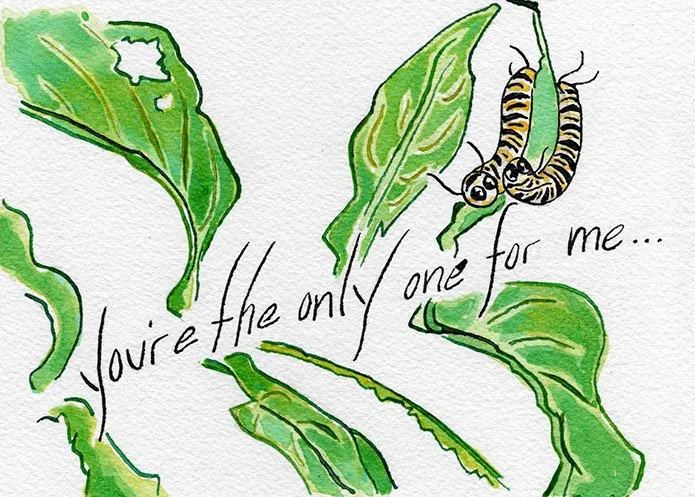 you're the only one for me...